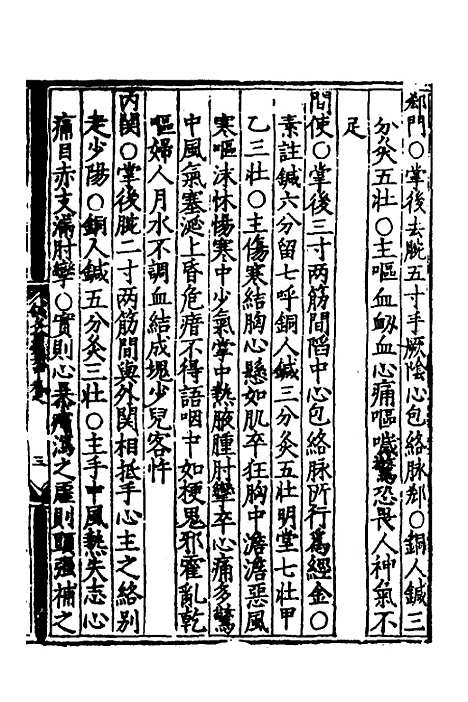 郄門○掌後去腕五寸手厥陰心包絡脉郄○銅人鍼三
分灸五壮○主嘔血衂血心痛嘔噦驚恐畏人神氣不
足
間使○掌後三寸兩筋間陷中心包絡脉所行爲經金○
素註鍼六分留七呼銅人鍼三分灸五壮明堂七壮甲
乙三壮○主傷寒結胸心懸如肌卒狂胸中澹澹惡風
寒嘔沬怵惕寒中少氣掌中熱腋腫肘攣卒心痛多驚
中風氣塞涎上昏危瘖不得語咽中如梗鬼邪霍亂乾
嘔婦人月水不調血結成塊少兒客忤
内関○掌後腕二寸兩筋間與外関相抵手心主之絡別
走少陽○銅人鍼五分灸三壮○主手中風熱失志心
痛目赤支滿肘攣○實則心暴痛瀉之虛則頭强補之
三